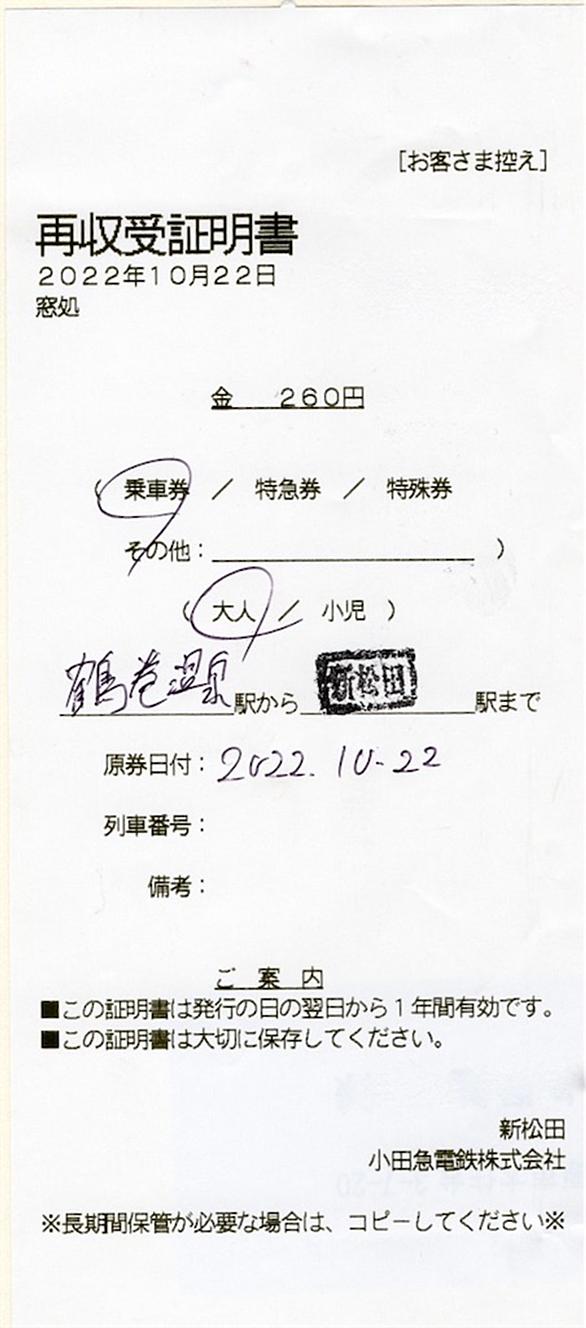 [お客さま控え]
再収受証明書
2022年10月22日
窓処
金 260円
( 乗車券 / 特急券 / 特殊券
その他: )
( 大人 / 小児 )
鶴巻温泉駅から 新松田 駅まで
原券日付: 2022.10-22
列車番号:
備考:
ご 案 内
■この証明書は発行の日の翌日から1年間有効です。
■この証明書は大切に保存してください。
新松田
小田急電鉄株式会社
※長期間保管が必要な場合は、コピーしてください※